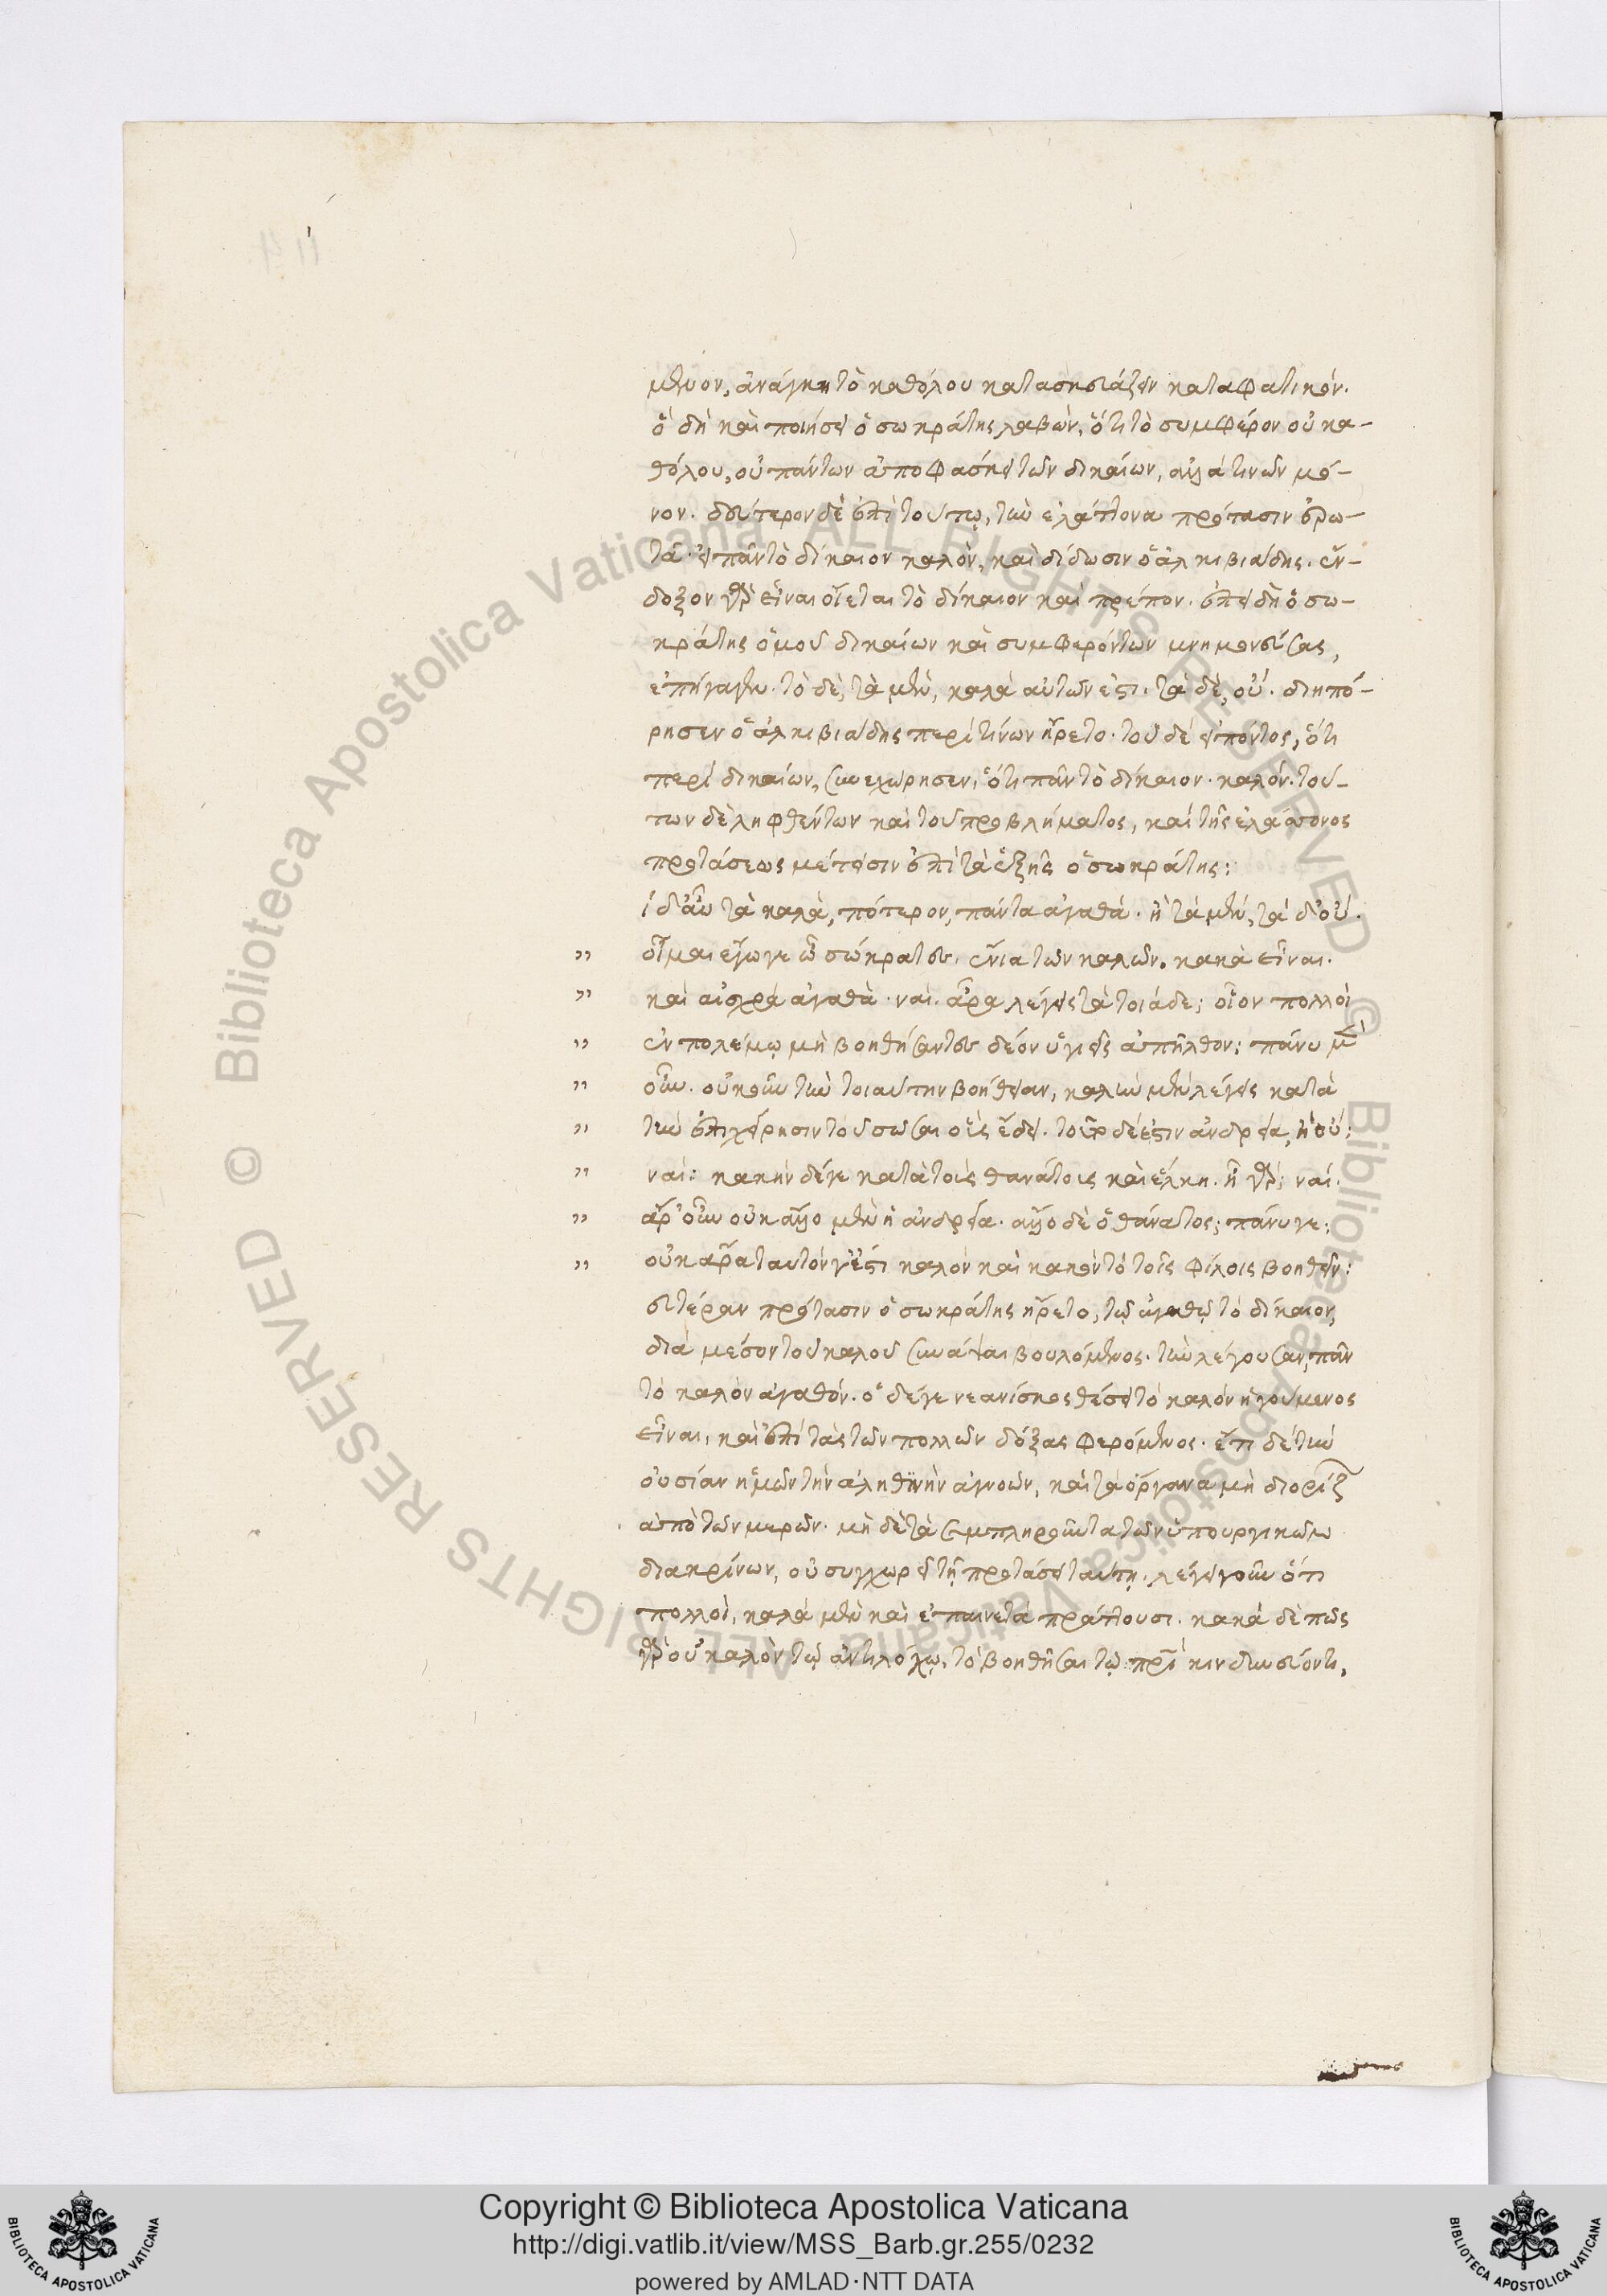 μενον, ἀνάγκη τὸ καθόλου κατασκευάζειν καταφατικόν.
ὃ δὴ καὶ ποιήσει ὁ σωκράτης λαβὼν, ὅτι τὸ συμφέρον οὐ κα-
θόλου, οὐ πάντων ἀποφάσκει τῶν δικαίων, ἀλλά τινῶν μό-
νον. δεύτερον δὲ ἐπὶ τούτῳ, τὴν ἐλάττονα πρότασιν ἐρω-
τᾶ. εἰ πᾶν τὸ δίκαιον καλὸν, καὶ δίδωσιν ὁ ἀλκιβιάδης. ἔν-
δοξον γὰρ εἶναι οἴεται τὸ δίκαιον καὶ πρέπον. ἐπειδὴ ὁ σω-
κράτης ὁμοῦ δικαίων καὶ συμφερόντων μνημονεύσας,
ἐπήγαγεν. τὸ δὲ, τὰ μὲν, καλὰ αὐτῶν ἐστι. τὰ δὲ, οὔ. διηπό-
ρησεν ὁ ἀλκιβιάδης περὶ τίνων ἤρετο. τοῦ δὲ εἰπόντος, ὅτι
περὶ δικαίων, συνεχώρησεν, ὅτι πᾶν τὸ δίκαιον. καλόν. τού-
των δὲ ληφθέντων καὶ τοῦ προβλήματος, καὶ τῆς ἐλάττονος
προτάσεως μέτεισιν ἐπὶ τὰ ἑξῆς ὁ σωκράτης:
τί δ' αὖ τὰ καλὰ, πότερον, πάντα ἀγαθά. ἢ τὰ μὲν, τὰ δ' οὔ.
" οἶμαι ἔγωγε ὦ σώκρατες. ἔνια τῶν καλῶν. κακὰ εἶναι.
" καὶ αἰσχρὰ ἀγαθά. ναί. ἆρα λέγεις τὰ τοιάδε; οἷον πολλοὶ
" ἐν πολέμῳ μὴ βοηθήσαντες δέον ὑγιεῖς ἀπῆλθον; πάνυ μὲν
" οὖν. οὐκοῦν τὴν τοιαύτην βοήθειαν, καλὴν μὲν λέγεις κατὰ
" τὴν ἐπιχείρησιν τοῦ σῶσαι οἷς ἔδει. τοῦτο δέ ἐστιν ἀνδρεία, ἢ οὔ;
" ναί: κακὴν δέ γε κατὰ τοὺς θανάτους καὶ ἕλκη. ἦ γάρ; ναί.
" ἆρ' οὖν οὐκ ἄλλο μὲν ἡ ἀνδρεία. ἄλλο δὲ ὁ θάνατος; πάνυ γε;
" οὐκ ἄρα ταυτόν γέ ἐστι καλὸν καὶ κακὸν τὸ τοῖς φίλοις βοηθεῖν:
πρότασιν ὁ σωκράτης ἤρετο, τῷ ἀγαθῷ τὸ δίκαιον,
διὰ μέσου τοῦ καλοῦ συνάψαι βουλόμενος. τὴν λέγουσαν, πᾶν
τὸ καλὸν ἀγαθόν. ὁ δέ γε νεανίσκος θέσει τὸ καλὸν ἡγούμενος
εἶναι, καὶ ἐπὶ τὰς τῶν πολλῶν δόξας φερόμενος. ἔτι δὲ τὴν
οὐσίαν ἡμῶν τὴν ἀληθινὴν ἀγνοῶν, καὶ τὰ ὄργανα μὴ διορίζ
ἀπὸ τῶν μερῶν. μὴ δὲ τὰ συμπληροῦντα τῶν ὑπουργικῶν
διακρίνων, οὐ συγχωρεῖ τῇ προτάσει ταύτῃ. λέγει γοῦν ὅτι
πολλοὶ, καλὰ μὲν καὶ ἐπαινετὰ πράττουσι. κακὰ δὲ πῶς
γὰρ οὐ καλὸν τῷ ἀντιλόχῳ, τὸ βοηθῆσαι τῷ πρὶ κινδυνεύοντι,
Copyright © Biblioteca Apostolica Vaticana
http://digi.vatlib.it/view/MSS_Barb.gr.255/0232
powered by AMLAD·NTT DATA
BIBLIOTECA APOSTOLICA VATICANA
BIBLIOTECA APOSTOLICA VATICANA
© Biblioteca Apostolica Vaticana ALL RIGHTS RESERVED
© Biblioteca Apostolica Vaticana ALL RIGHTS RESERVED